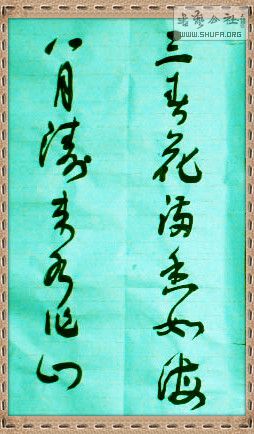 三春花满香如海
八月涛来水作山
書藝公社
WWW.SHUFA.ORG